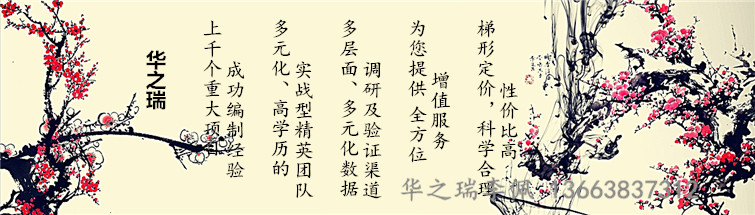 华之瑞
上千个重大项目
成功编制经验
多元化、高学历的
实战型精英团队
多层面、多元化数据
调研及验证渠道
为您提供 全方位
增值服务
梯形定价，科学合理
性价比高
华之瑞